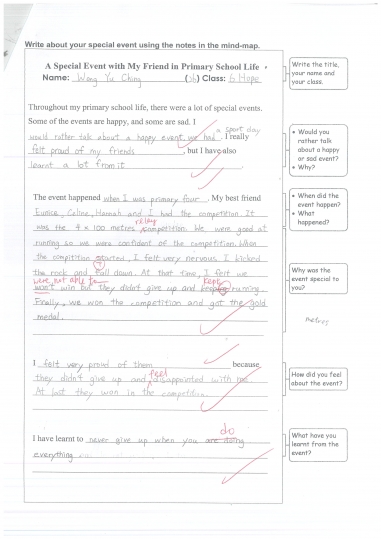 Write about your special event using the notes in the mind-map.
A Special Event with My Friend in Primary School Life
Name: Wong Yu Ching (26) Class: 6 Hope
Write the title, your name and your class.
Throughout my primary school life, there were a lot of special events.
Some of the events are happy, and some are sad. I
a sport day
would rather talk about a happy event, we had. I really
felt proud of my friends, but I have also
learnt a lot from it
Would you rather talk about a happy or sad event?
Why?
The event happened when I was primary four. My best friend
Eunice, Celine, Hannah and I had the competition. It
relay
was the 4 × 100 metres competition. We were good at
running so we were confident of the competition. When
the competition started, I felt very nervous. I kicked
the rock and fall down. At that time, I felt we
were not able to kept
won't win but they didn't give up and running.
Finally, we won the competition and got the gold
medal.
When did the event happen?
What happened?
Why was the event special to you?
metres
I felt very proud of them because
feel
they didn't give up and disappointed with me.
At last they won in the competition.
How did you feel about the event?
do
I have learnt to never give up when you are doing
everything
What have you learnt from the event?